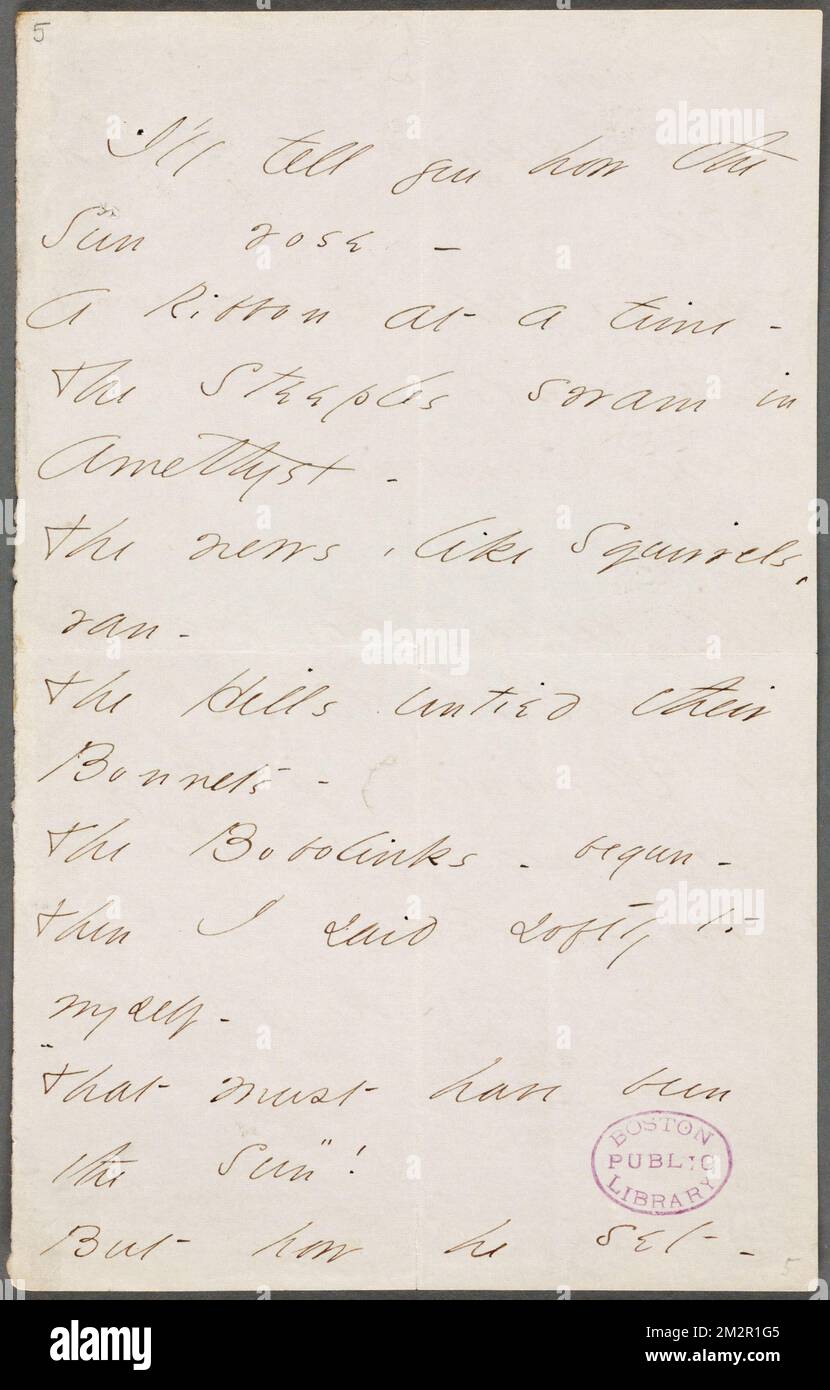 5
I'll tell you how the
Sun rose –
A Ribbon at a time –
The Steeples swam in
Amethyst –
The news, like Squirrels,
ran –
The Hills untied their
Bonnets –
The Bobolinks – begun –
Then I said softly to
myself –
"That must have been
the Sun"!
But how he set –
BOSTON
PUBLIC
LIBRARY
5
alamy
Image ID: 2M2R1G5
www.alamy.com